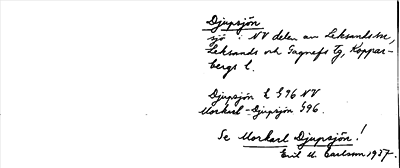 Djupsjön
sjö i NV delen av Leksands sn,
Leksands och Gagnefs tg, Koppar-
bergs l.
Djupsjön L § 96 NV
Morkarl-Djupsjön § 96.
Se Morkarl Djupsjön!
Erik M. Carlsson 1937.